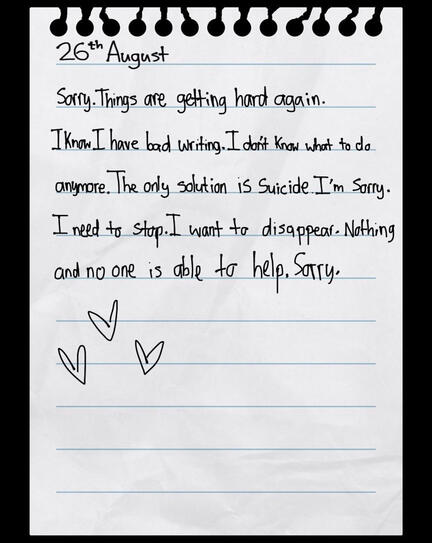 26th August
Sorry. Things are getting hard again.
I Know I have bad writing. I don't know what to do
anymore. The only solution is Suicide. I'm Sorry.
I need to stop. I want to disappear. Nothing
and no one is able to help. Sorry.